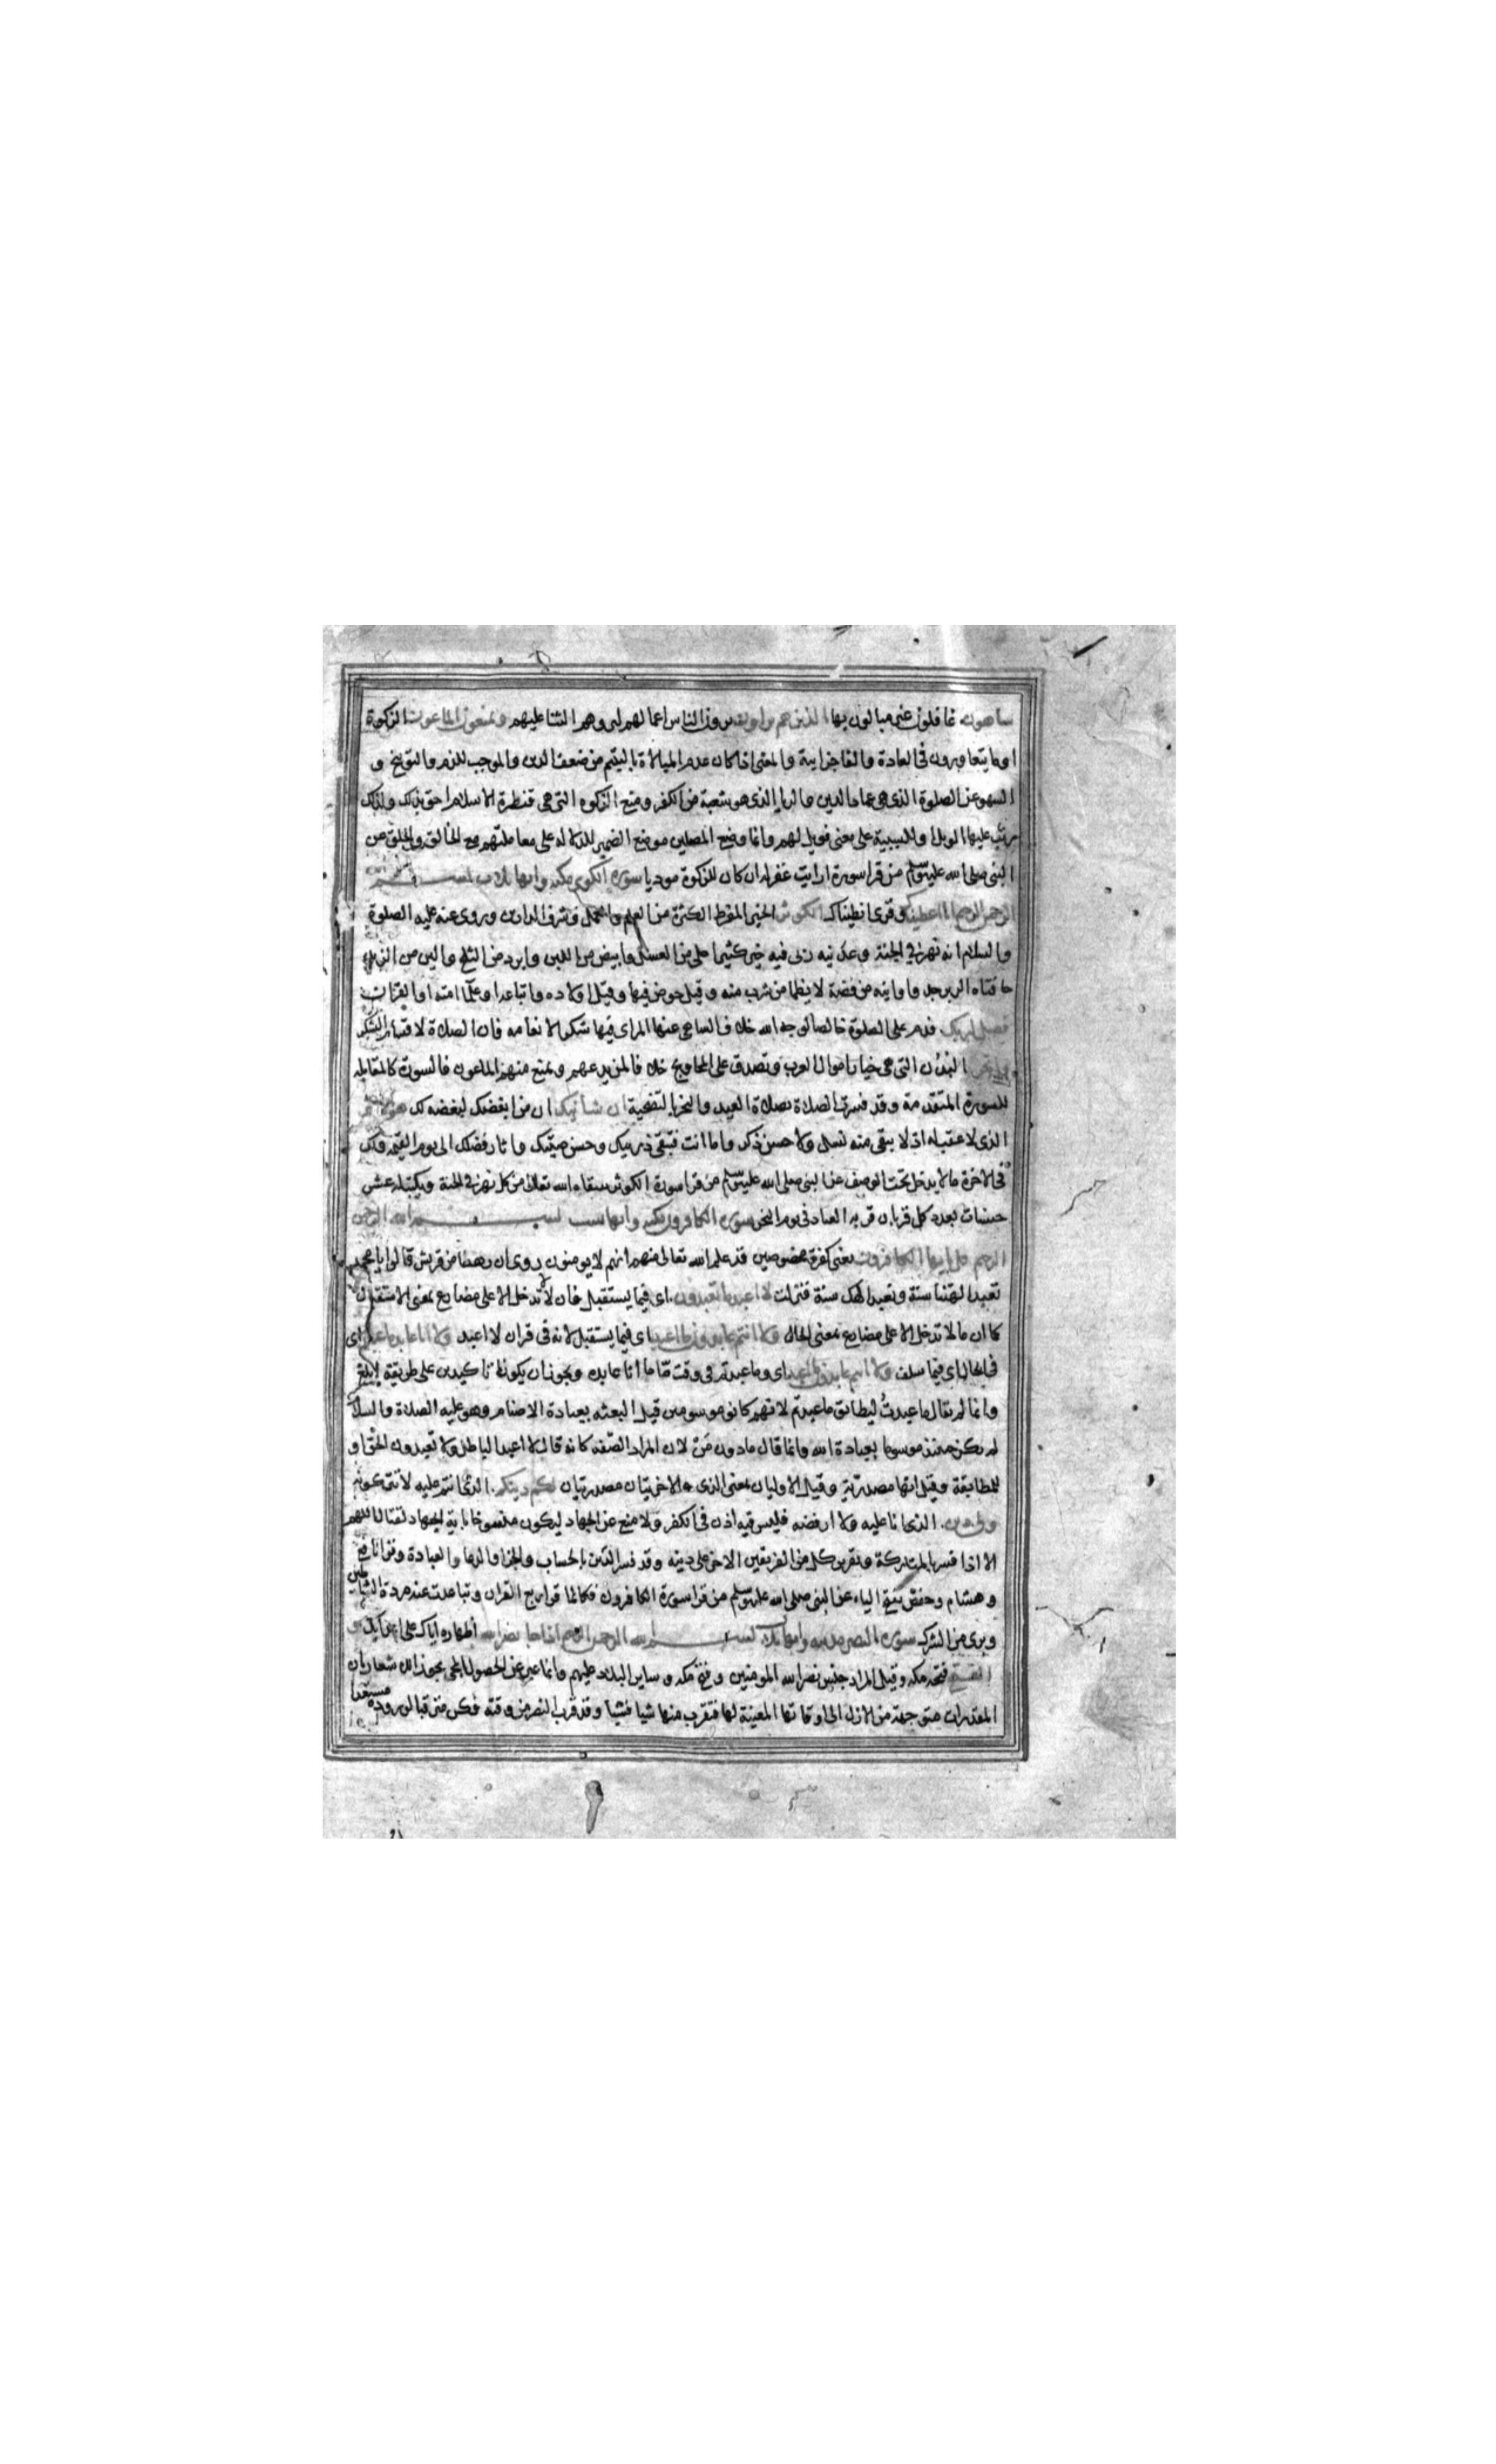 ساهون غافلون غير مبالون بها الذين هم يراون يرون الناس اعمالهم ليروهم الثنا عليهم ويمنعون الماعون الزكوة
او ما يتعاورون في العادة والفا جزايية والمعنى اذا كان عدم المبالاة باليتيم من ضعف الدين والموجب للذم والتوبيخ و
السهو عن الصلوة الذي هي عماد الدين والريا الذي هو شعبة من الكفر ومنع الزكوه التي هي قنطرة الاسلام احق بذلك ولذلك
رتب عليها الويل او للسببية على معنى فويل لهم وانما وضع المصلين موضع الضمير للدلاله على معاملتهم مع الخالق والخلق عن
النبي صلى الله عليه وسلم من قرا سورة ارايت غفر له ان كان للزكوة موديا سورة الكوثر مكيه وايها ثلاث بسم
الرحمن الرحيم انا اعطيناك وقرى انطيناك الكوثر الخير المفرط الكثرة من العلم والعمل وشرف الدارين وروى عنه عليه الصلوة
والسلام انه نهر في الجنة وعدنيه ربى فيه خير كثير احلى من العسل وابيض من اللبن وابرد من الثلج والين من الزبد
حافتاه الزبرجد واوانيه من فضة لا يظما من شرب منه وقيل حوض فيها وقيل اولاده واتباعه او علما امته او القرآن
فصل لربك فدم على الصلوة خالصا لوجه الله خلاف الساهى عنها المراى فيها شكرا لانعامه فان الصلاة لاقسام الشكر
وانحر البدن التي هي خيار اموال العرب وتصدق على المحاويج خلافا لمن يدعهم ويمنع منهم الماعون فالسورة كالمقابله
للسورة المتقدمة وقد فسرت الصلاة بصلاة العيد والنحر بالتضحية ان شانئك ان من ابغضك لبغضه لك هو الابتر
الذي لا عقب له اذ لا يبقى منه نسل ولا حسن ذكر واما انت فتبقى ذريتك وحسن صيتك واثار فضلك الى يوم القيمة ولك
في الاخرة ما لا يدخل تحت الوصف عن النبي صلى الله عليه وسلم من قرا سورة الكوثر سقاه الله تعالى من كل نهر في الجنة ويكتب له عشر
حسنات بعدد كل قربان قربه العباد في يوم النحر سورة الكافرون مكيه وايها ست بسم الله الرحمن
الرحيم قل يا ايها الكافرون يعنى كفرة مخصوصين قد علم الله تعالى منهم انهم لا يومنون روى ان رهطا من قريش قالوا يا محمد
تعبد الهتنا سنة ونعبد الهك سنة فنزلت لا اعبد ما تعبدون اى فيما يستقبل فان لا لا تدخل الا على مضارع بمعنى الاستقبال
كما ان ما لا تدخل الا على مضارع بمعنى الحال ولا انتم عابدون ما اعبد اى فيما يستقبل لانه في قران لا اعبد ولا انا عابد ما عبدتم اى
في الحال او فيما سلف ولا انتم عابدون ما اعبد اى وما عبدتم في وقت ما ما انا عابده ويجوز ان يكونا تاكيدين على طريقة ابلغ
وانما لم يقل ما عبدت ليطابق ما عبدتم لانهم كانو موسومين قبل البعثه بعبادة الاصنام وهو عليه الصلاة والسلام
لم يكن حينئذ موسوما بعبادة الله وانما قال ما دون من لان المراد الصفه كانه قال لا اعبد الباطل ولا تعبدون الحق او
للمطابقة وقيل انها مصدرية وقيل الاوليان بمعنى الذى والاخريان مصدريتان لكم دينكم الذى انتم عليه لا تتركونه
ولى دين الذي انا عليه ولا ارفضه فليس فيه اذن في الكفر ولا منع عن الجهاد ليكون منسوخا باية الجهاد لقتالا اللهم
الا اذا فسر بالمتاركة وتقرير كل من الفريقين الاخر على دينه وقد فسر الدين بالحساب والجزا والدعا والعبادة وقرا نافع
وهشام وحفص بفتح الياء عن النبي صلى الله عليه وسلم من قرا سورة الكافرون فكانما قرا ربع القران وتباعدت عنه مردة الشياطين
وبرى من الشرك سورة النصر مدنيه وايها ثلاث بسم الله الرحمن الرحيم اذا جاء نصر الله اظهاره اياك على اعدايك و
الفتح فتح مكه وقيل المراد جنس نصر الله المومنين وفتح مكه وساير البلاد عليهم وانما عبر عن الحصول بالمجى تجوزا للاشعار بان
المقدرات متوجهة من الازل الى اوقاتها المعينة لها فتقرب منها شيا فشيا وقد قرب النصر من وقته فكن مترقبا لوروده مستعدا